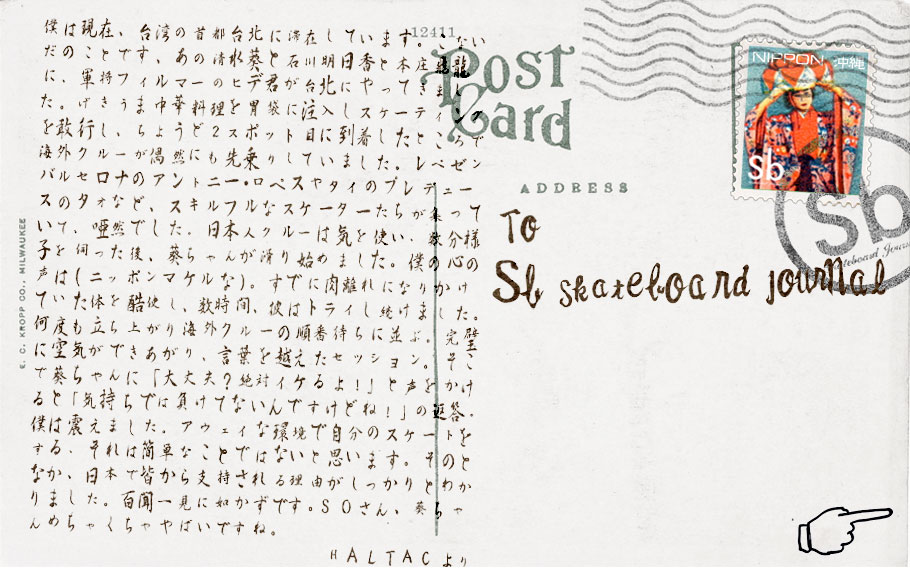 僕は現在、台湾の首都台北に滞在しています。こない
だのことです、あの清水葵と石川明日香と本庄飛龍
に、軍将フィルマーのヒデ君が台北にやってきまし
た。げきうま中華料理を胃袋に注入しスケーティング
を敢行し、ちょうど2スポット目に到着したところで
海外クルーが偶然にも先乗りしていました。レペゼン
バルセロナのアントニー・ロペスやタイのプレデュー
スのタオなど、スキルフルなスケーターたちが集って
いて、唖然でした。日本人クルーは気を使い、数分様
子を伺った後、葵ちゃんが滑り始めました。僕の心の
声は(ニッポンマケルな)。すでに肉離れになりかけ
ていた体を酷使し、数時間、彼はトライし続けました。
何度も立ち上がり海外クルーの順番待ちに並ぶ。完璧
に空気ができあがり、言葉を越えたセッション。そこ
で葵ちゃんに「大丈夫?絶対イケるよ!」と声をかけ
ると「気持ちでは負けてないんですけどね!」の返答。
僕は震えました。アウェイな環境で自分のスケートを
する、それは簡単なことではないと思います。そのと
なか、日本で皆から支持される理由がしっかりとわか
りました。百聞一見に如かずです。SOさん、葵ちゃ
んめちゃくちゃやばいですね。
HALTACより
E. C. KROPP CO., MILWAUKEE
12411
Post
Card
ADDRESS
To
Sb skateboard journal
NIPPON 沖縄
Sb
Sb
Skateboard Journal